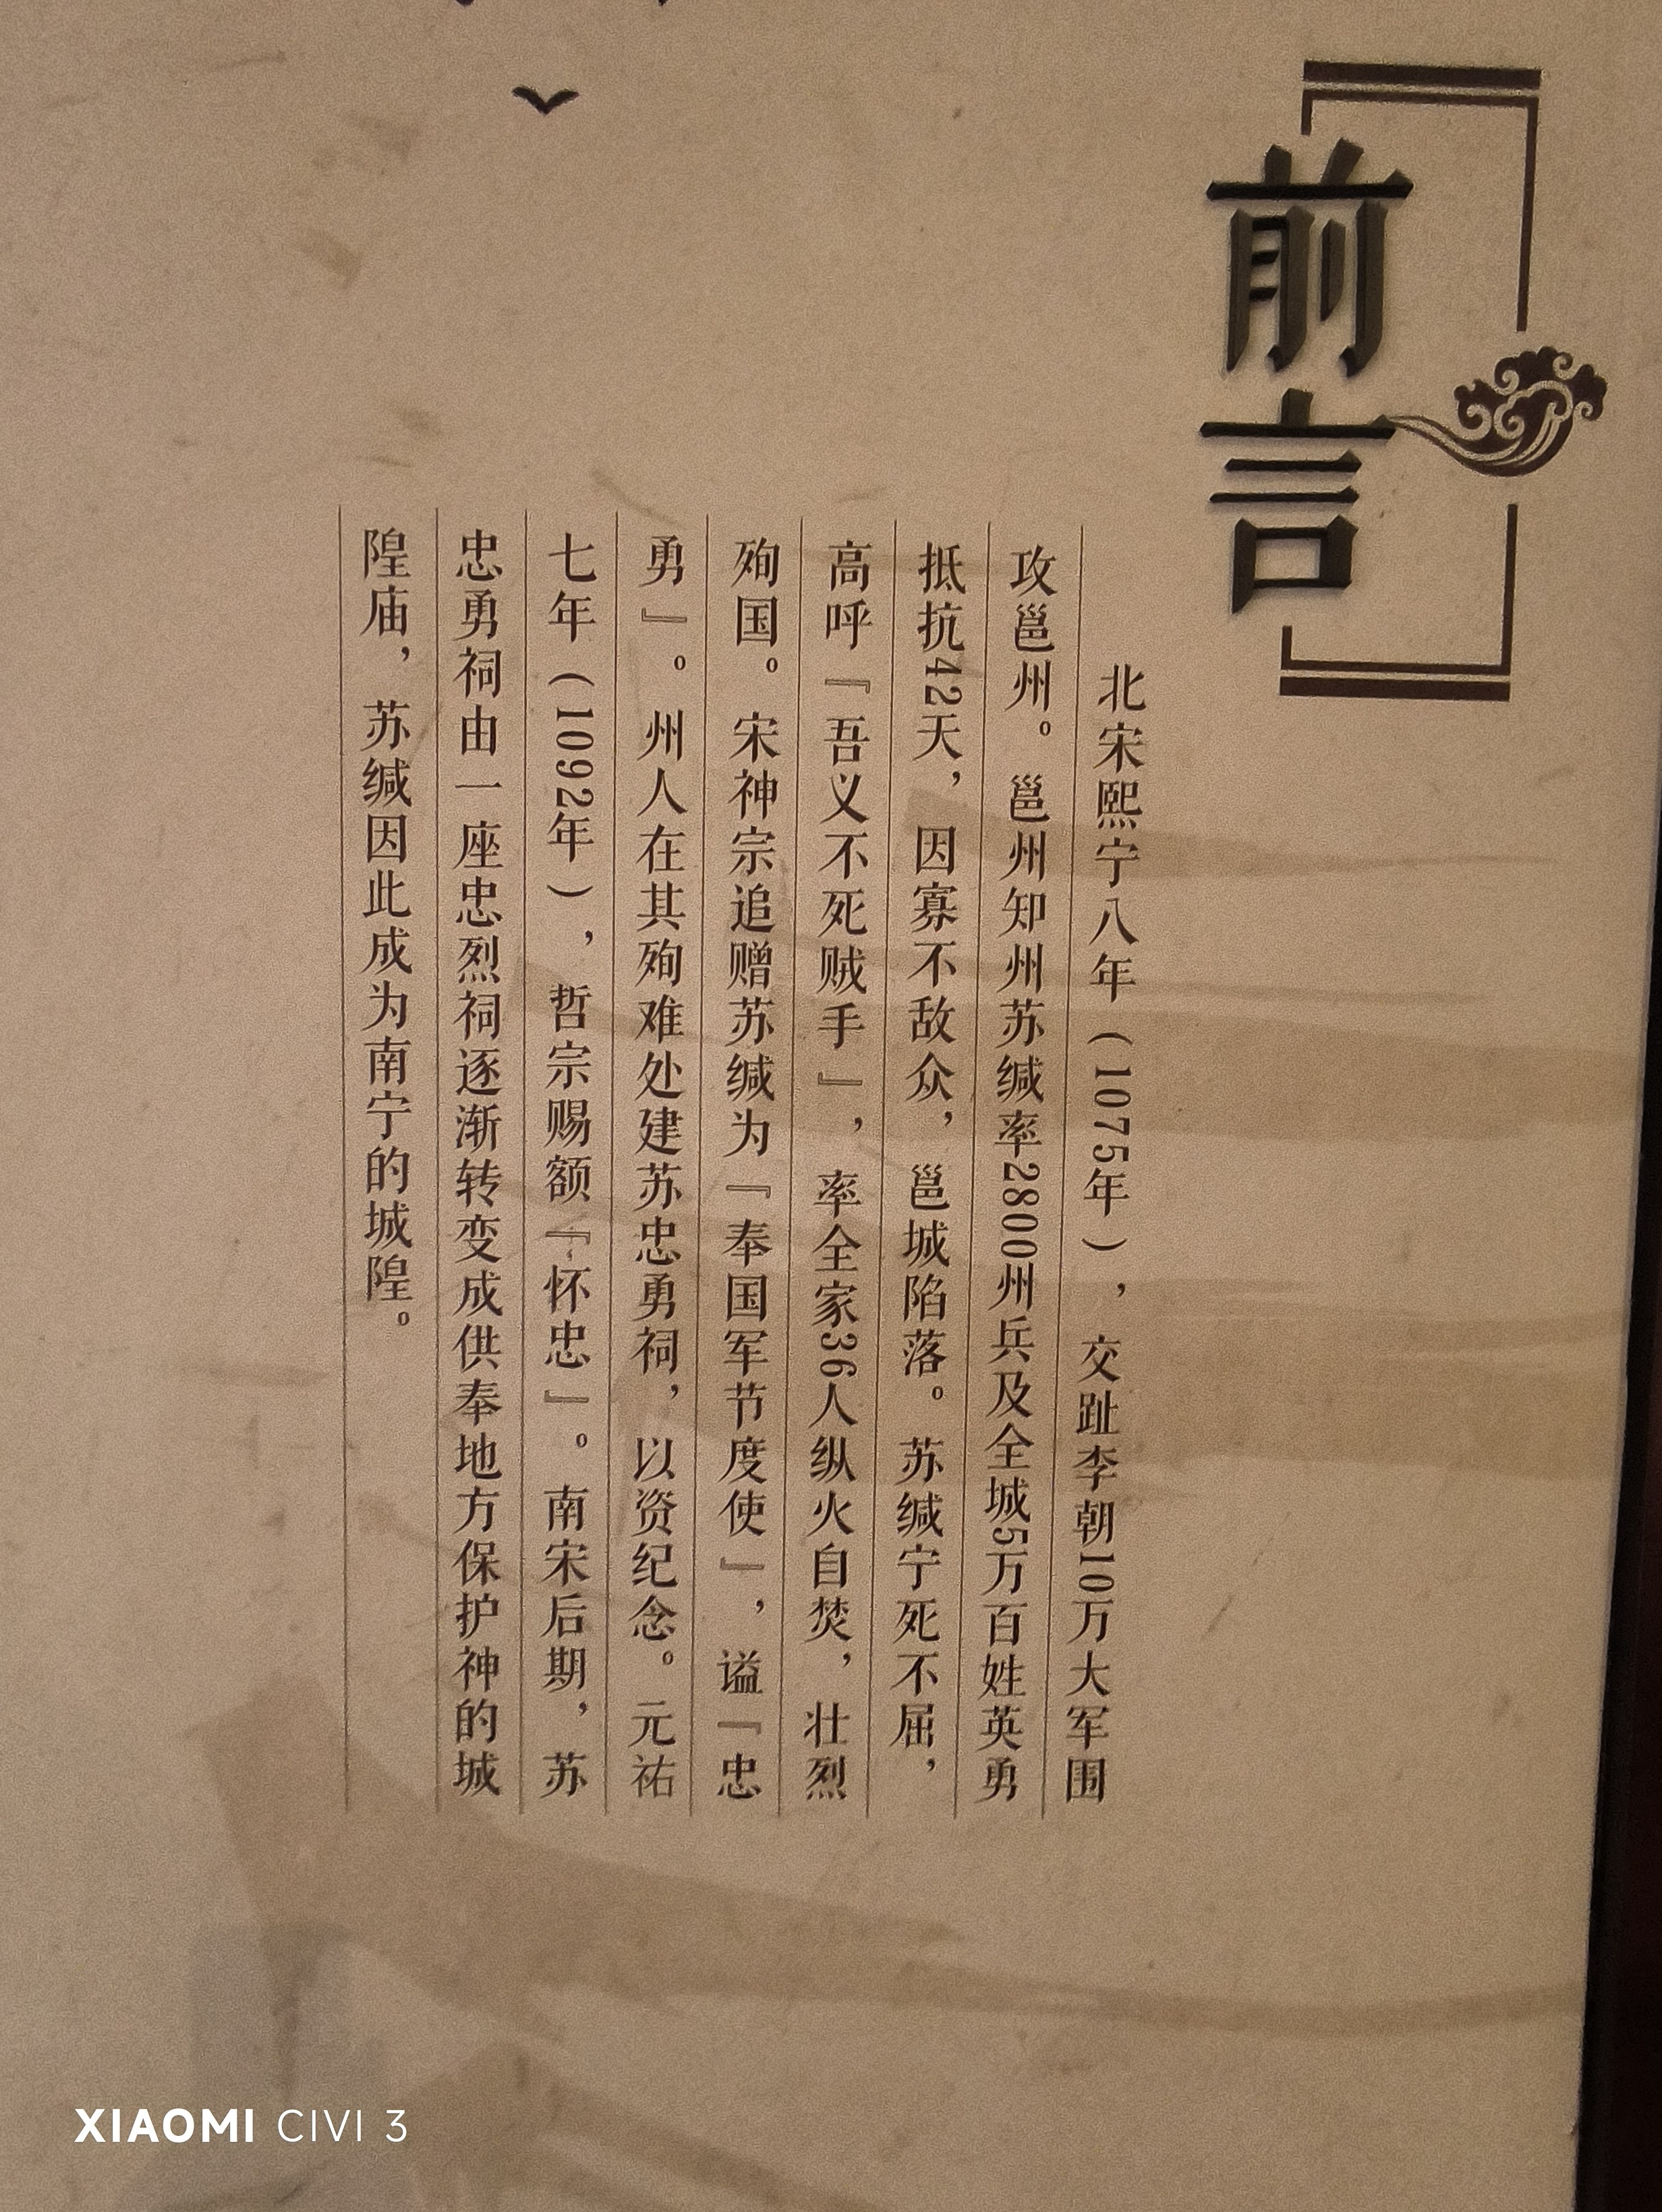 前言
北宋熙宁八年（1075年），交趾李朝10万大军围
攻邕州。邕州知州苏缄率2800州兵及全城5万百姓英勇
抵抗42天，因寡不敌众，邕城陷落。苏缄宁死不屈，
高呼『吾义不死贼手』，率全家36人纵火自焚，壮烈
殉国。宋神宗追赠苏缄为『奉国军节度使』，谥『忠
勇』。州人在其殉难处建苏忠勇祠，以资纪念。元祐
七年（1092年），哲宗赐额『怀忠』。南宋后期，苏
忠勇祠由一座忠烈祠逐渐转变成供奉地方保护神的城
隍庙，苏缄因此成为南宁的城隍。
XIAOMI CIVI 3